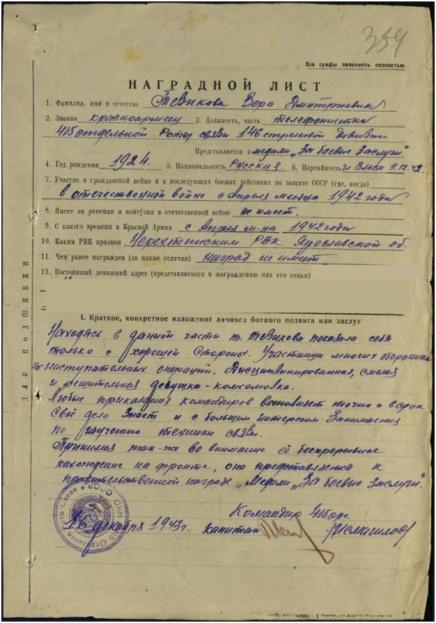 354
Все графы заполнять полностью.
НАГРАДНОЙ ЛИСТ
1. Фамилия, имя и отчество Тевикова Вера Дмитриевна
2. Звание красноармеец 3. Должность, часть телефонистка
415 отдельной Роты связи 146 стрелковой дивизии
Представляется к медали „За боевые Заслуги"
4. Год рождения 1924. 5. Национальность Русская 6. Партийность
7. Участие в гражданской войне и в последующих боевых действиях по защите СССР (где, когда)
в отечественной войне с апреля месяца 1942 года
8. Имеет ли ранения и контузии в отечественной войне не имеет.
9. С какого времени в Красной Армии с Апреля м-ца 1942 года
10. Каким РВК призван Нерехтинским РВК Ярославской об.
11. Чем ранее награжден (за какие отличия) наград не имеет
12. Постоянный домашний адрес (представляемого к награждению или его семьи)
ДЛЯ ПОДШИВКИ
I. Краткое, конкретное изложение личного боевого подвига или заслуг
Находясь в данной части т. Тевикова показала себя
только с хорошей стороны. Участница многих оборонит.
наступательных операций. Дисциплинированная, смелая
и решительная девушка-комсомолка.
Любые приказания командиров выполняет точно и в срок
Своё дело знает и с большим интересом Занимается
по изучению техники связи.
Принимая так-же во внимание её беспрерывное
нахождение на фронте, она представляется к
правительственной награде „Медаль „За боевые Заслуги".
Командир
капитан
декабря 1943г.